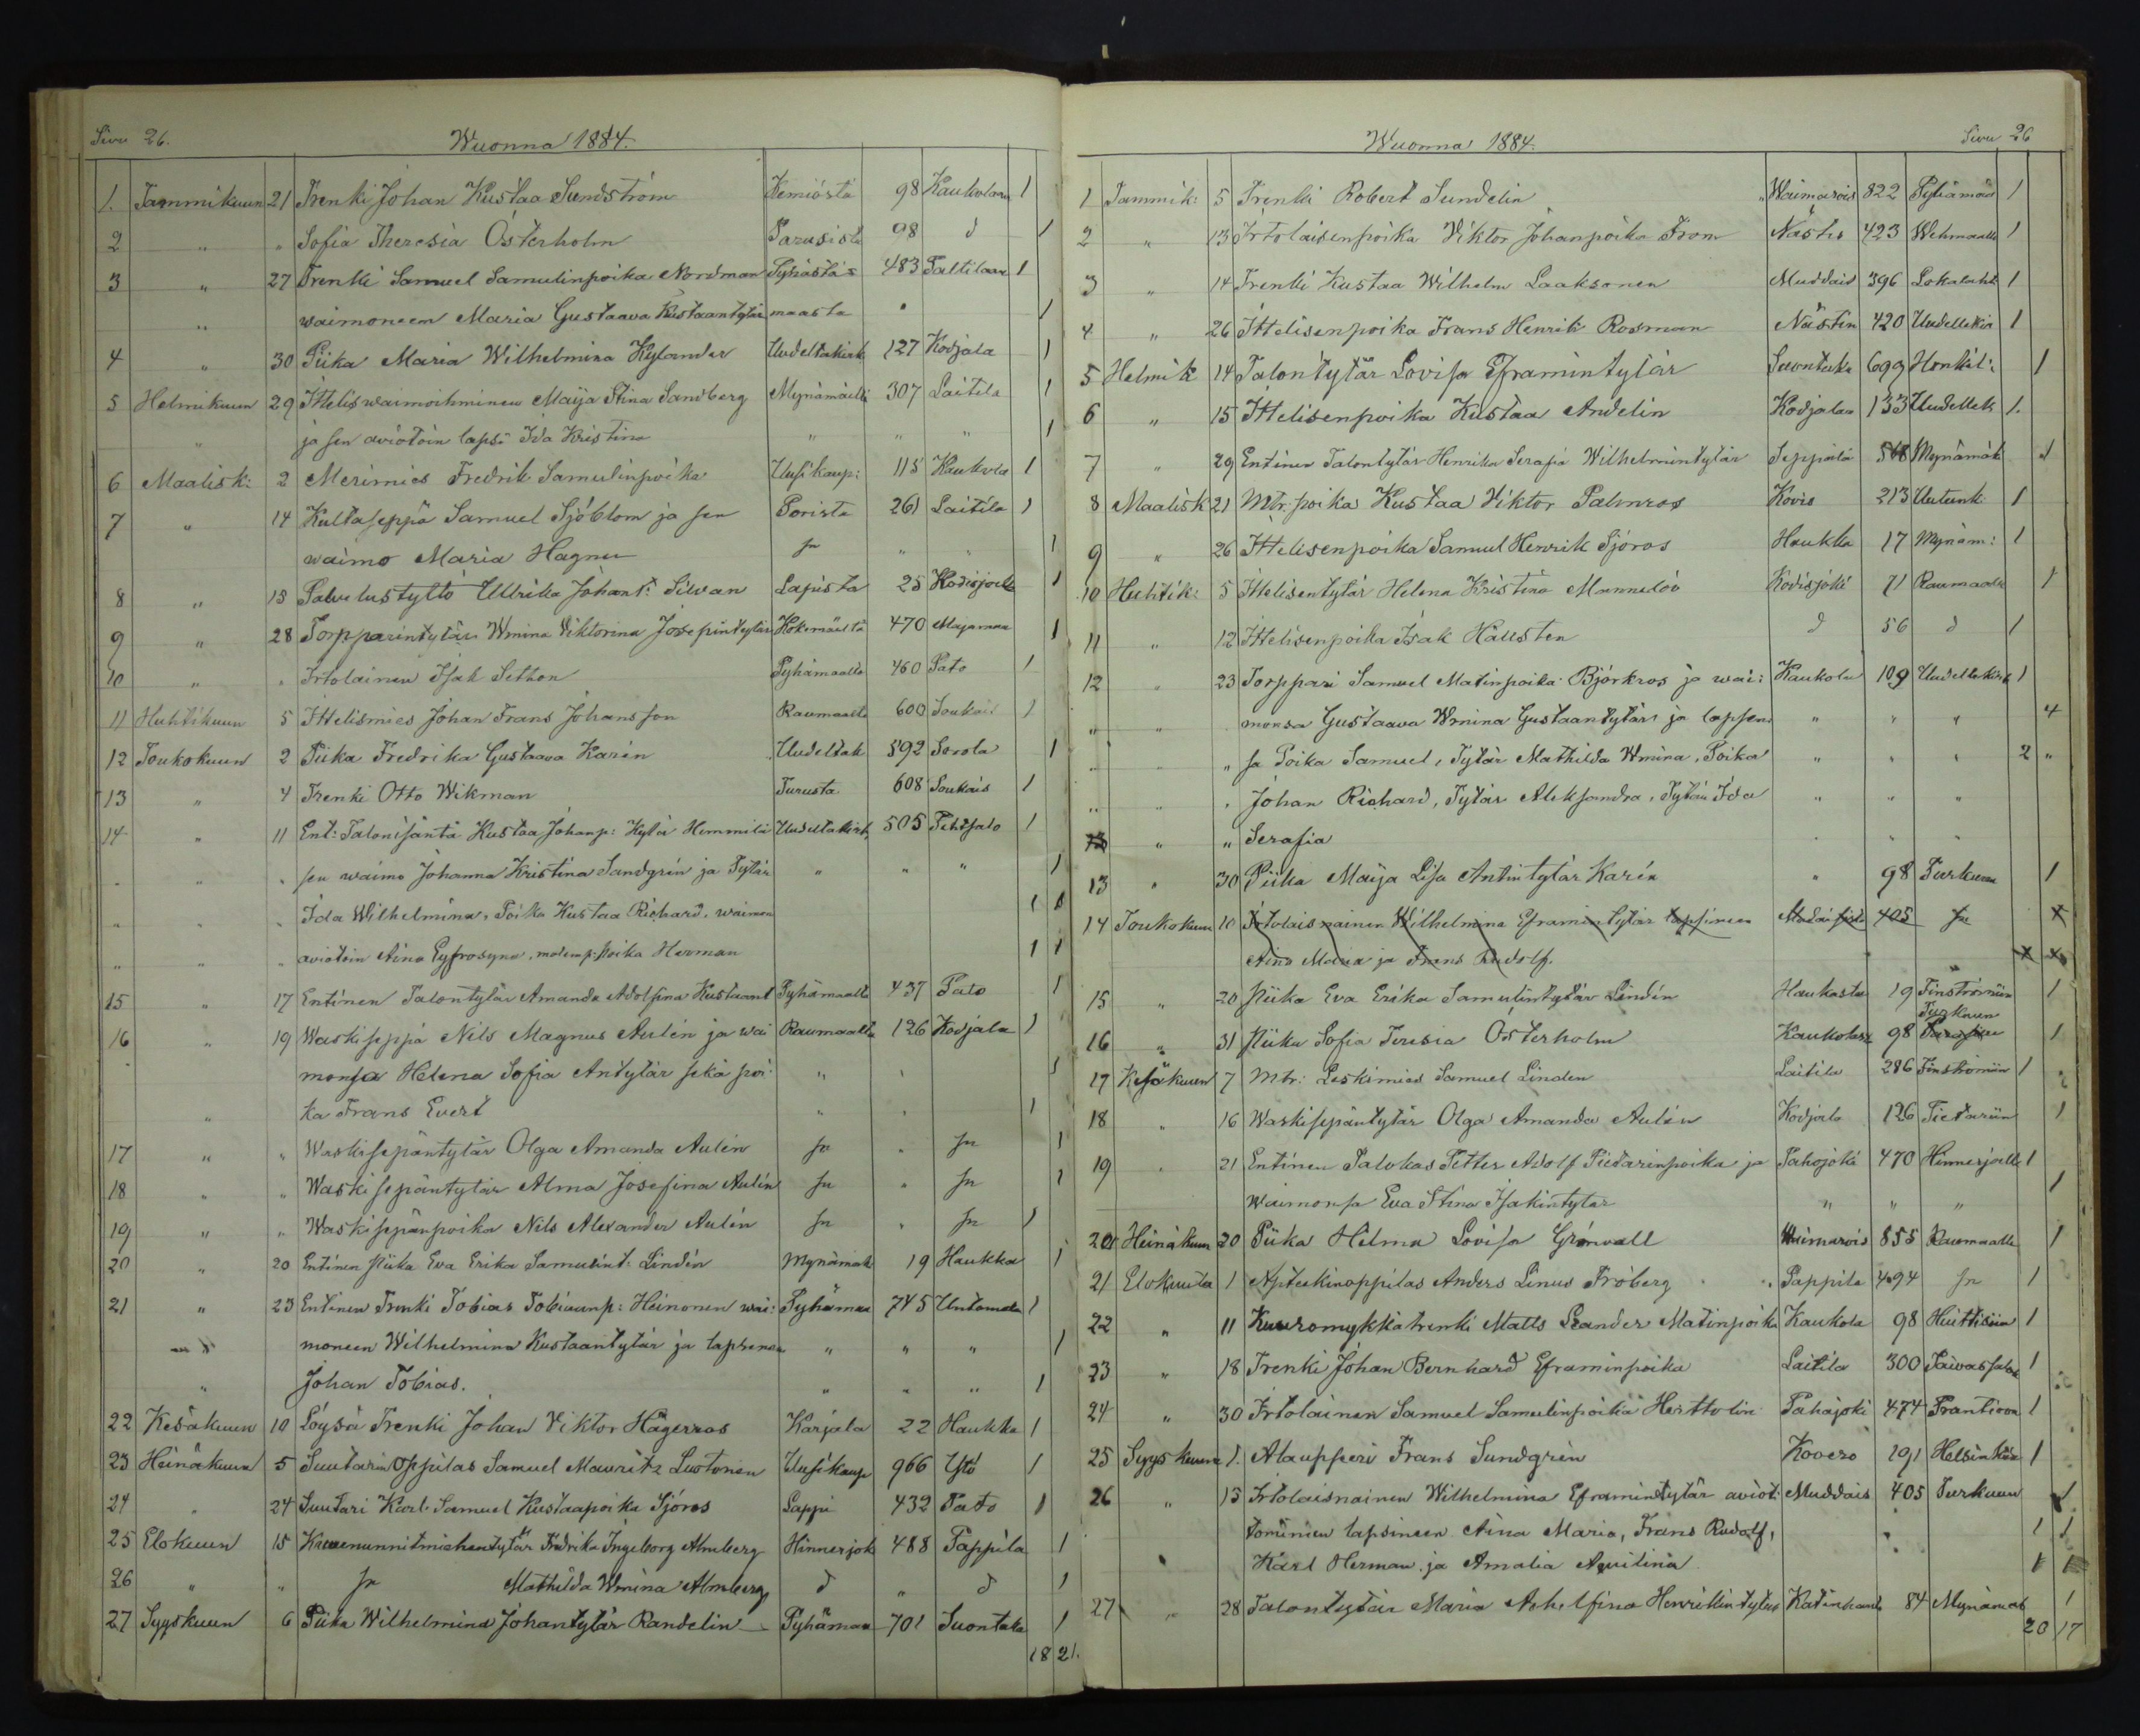 Sivu 26. Wuonna 1884.
1. Tammikuun 21 Trenki Johan Kustaa Sundström Kemiöstä 98 Kaukolaan 1
2 " " Sofia Theresia Österholm 98 d 1
3 " 27 Trenki Samuel Samulinpoika Nordman 483 1
" waimoneen Maria Gustaava Kustaantytär maasta " 1
4 " 30 Piika Maria Wilhelmina Kylander Uudeltakirk 127 Kodjala 1
5 Helmikuun 29 Ittellis waimoihminen Maija Stina Sandberg Mynämäelt 307 Laitila 1
" ja sen aviotoin lapsi Ida Kristina " " " 1
6 Maalisk: 2 Merimies Fredrik Samulinpoika Uusikaup: 115 Kaukola 1
7 " 14 Kultaseppä Samuel Sjöblom ja sen Porista 261 Laitila 1
waimo Maria Hagner sn " " 1
8 " 15 Palvelustyttö Ulrika Johant: Silvan Lapista 25 Kodisjoelle 1
9 " 28 Torpparintytär Wmina Viktorina Josepintytär Kokemäeltä 470 1
10 " " Irtolainen Isak Sethon Pyhämaalta 460 Pato 1
11 Huhtikuun 5 Ittellismies Johan Frans Johansson Raumaalta 600 Soukais 1
12 Toukokuun 2 Piika Fredrika Gustaava Karin Uudeltak 592 Sorola 1
13 " 4 Trenki Otto Wikman Turusta 608 Soukais 1
14 " 11 Ent: Talonisäntä Kustaa Johanp: Kylä Himmilä Uudeltakirk 505 1
" " " sen waimo Johanna Kristina Sandgrin ja Tytär " " " 1
" " " Ida Wilhelmina, Poika Kustaa Richard, waimon 1 1
" " " aviotoin Aina Eyfrosyna, molemp: Poika Herman 1 1
15 " 17 Entinen Talontytär Amanda Adolfina Kustaant Pyhämaalta 437 Pato 1
16 " 19 Waskiseppä Nils Magnus Aulén ja wai Raumaalta 126 Kodjala 1
monsa Helena Sofia Antytär sekä poi: " " 1
" ka Frans Evert " " 1
17 " " Waskisepäntytär Olga Amanda Aulén sn " sn 1
18 " " Waskisepäntytär Alma Josefina Aulén sn " sn 1
19 " " Waskisepänpoika Nils Alexander Aulén sn " sn 1
20 " 20 Entinen Piika Eva Erika Samulint: Lindén Mynämäk 19 Haukka 1
21 " 23 Entinen Trenki Tobias Tobiaanp: Heinonen wai: Pyhämaa 745 Untamala 1
moneen Wilhelmina Kustaantytär ja lapsenen " " " 1
" Johan Tobias. " " " 1
22 Kesäkuun 10 Löysä Trenki Johan Viktor Hägerros Karjala 22 Haukka 1
23 Heinäkuun 5 Suutarin Oppilas Samuel Mauritz Luotonen Uusikaup 966 Ytö 1
24 " 24 Suutari Karl Samuel Kustaapoika Sjöros Lappi 432 Pato 1
25 Elokuun 15 Fredrika Ingeborg Almberg Hinnerjok 488 Pappila 1
26 " " sn Mathilda Wmina Almberg d " d 1
27 Syyskuun 6 Piika Wilhelmina Johantytär Randelin Pyhämaa 701 Suontaka 1
18 21.
Wuonna 1884. Sivu 26
1 Tammik: 5 Trenki Robert Sundelin 822 Pyhämaa 1
2 " 13 Irtolaisenpoika Viktor Johanpoika From Nästis 423 Wehmaalle 1
3 " 14 Trenki Kustaa Wilhelm Laaksonen Muddais 396 Lokalaht 1
4 " 26 Ittelisenpoika Frans Henrik Rosman Nästin 420 Uudellekir 1
5 Helmik 14 Talontytär Lovisa Eframintytär Suontaka 699 Honkil: 1
6 " 15 Ittelisenpoika Kustaa Andelin Kodjalaa 133 Uudellek 1.
7 " 29 Entinen Talontytär Henrika Serafia Wilhelmintytär Seppälä Mynämäk 1
8 Maalisk 21 Mtr: poika Kustaa Viktor Palmros 213 1
9 " 26 Ittelisenpoika Samuel Henrik Sjöros Haukka 17 Mynäm: 1
10 Huhtik: 5 Ittelisentytär Helena Kristina Mannelöv Kodisjoki 71 Raumaalle 1
11 " 12 Ittelisenpoika Isak Hällsten d 56 d 1
12 " 23 Torppari Samuel Matinpoika Björkros ja wai: Kaukola 109 Uudellekirk 1
" " monsa Gustaava Wmina Gustaantytär ja lapsen " " " 4
" " " sa Poika Samuel, Tytär Mathilda Wmina, Poika " " " 2 "
" " " Johan Richard, Tytär Aleksandra, Tytär Ida " " "
13 " " Serafia " " "
13 " 30 Piika Maija Lisa Antintytär Karin " 98 Turkuun 1
14 Toukokuun 10 Irtolaisnainen Wilhelmina Eframintytär lapsineen 405 sn
Aina Maria ja Frans Rudolf.
15 " 20 Piika Eva Erika Samulintytär Lindén Haukasta 19 Finströmiin 1
16 " 31 Piika Sofia Teresia Österholm Kaukolasta 98 Turkuun 1
17 Kesäkuun 7 Mtr: Leskimies Samuel Linden Laitila 286 Finströmiin 1
18 " 16 Waskisepäntytär Olga Amanda Aulén Kodjala 126 Pietariin 1
19 " 21 Entinen Talokas Petter Adolf Pietarinpoika ja Pahojoki 470 Hinnerjoelle 1
Waimonsa Eva Stina Isakintytär " " " 1
20 Heinäkuun 20 Piika Hilma Lovisa Grönvall 855 Raumaalle 1
21 Elokuuta 1 Apteekinoppilas Anders Linus Fröberg Pappila 494 sn 1
22 " 11 Kuuromykkätrenki Matts Leander Matinpoika Kaukola 98 Huittisiin 1
23 " 18 Trenki Johan Bernhard Eframinpoika Laitila 300 Taivassalo 1
24 " 30 Irtolainen Samuel Samulinpoika Herttolin Pahajoki 474 1
25 Syyskuun 1. Alaupseri Frans Sundgrén Kovero 191 Helsinkiin 1
26 " 15 Irtolaisnainen Wilhelmina Eframintytär aviot: Muddais 405 Turkuun 1
tominien lapsineen Aina Maria, Frans Rudolf, " 1 1
Karl Herman, ja Amalia Aqvilina 1 1
27 " 28 Talontytär Maria Henrikintytär Katinhänt 84 Mynämäk 1
20 17